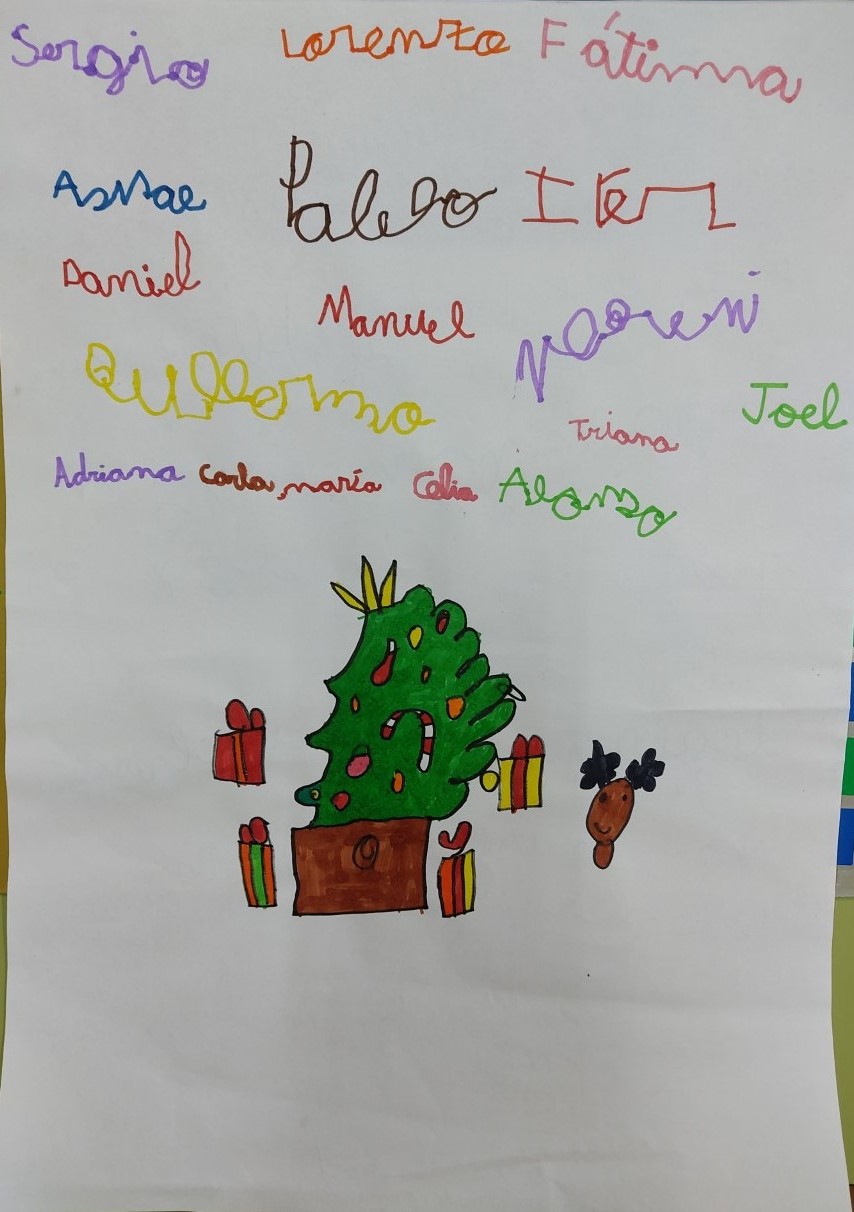 Sergio Lorenzo Fátima
Pablo
Daniel
Manuel
Guillermo
Triana Joel
Adriana Carla María Celia Alonso